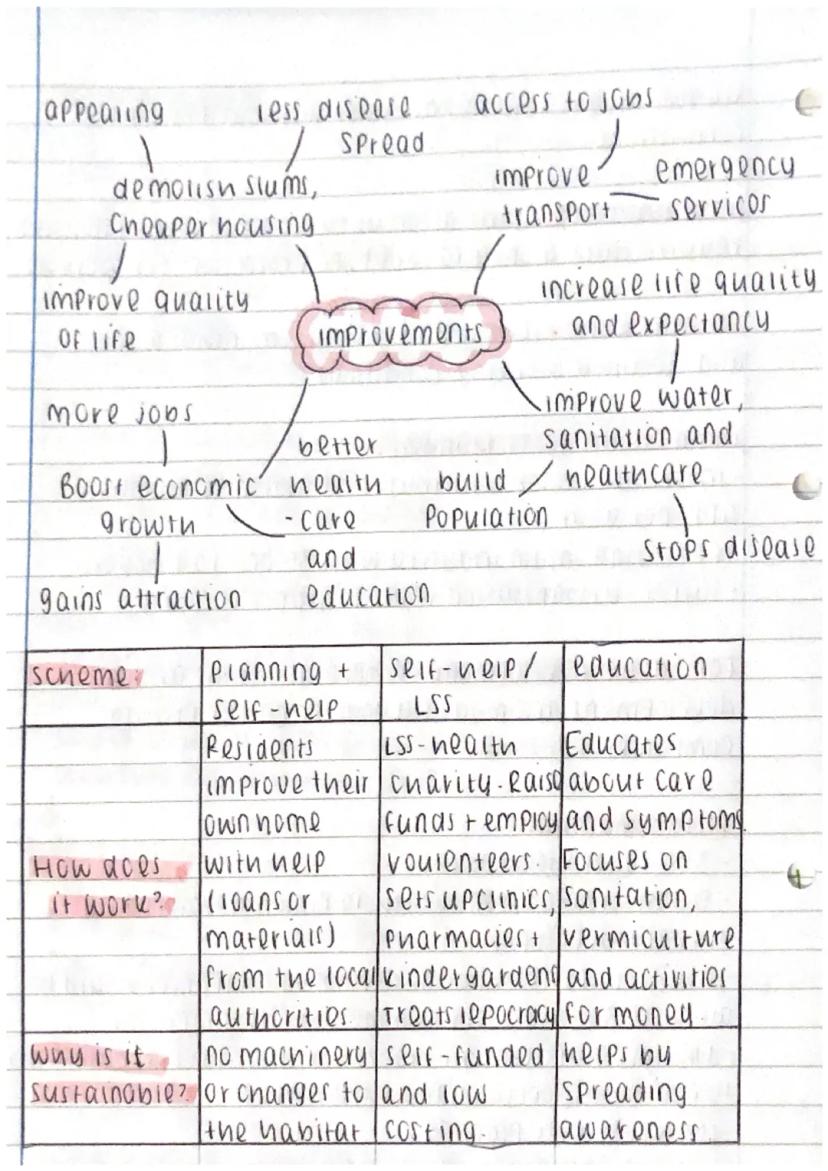 appealing
less disease
spread
demolish slums,
cheaper housing
improve quality
of life
access to jobs
improve
transport
emergency
services
improvements
increase life quality
and expectancy
improve water,
sanitation and
healthcare
build
population
stops disease
more jobs
Boost economic
growth
gains attraction
better
health
-care
and
education
scheme:
Planning +
self-help
self-help/
LSS
education
How does
it work?
Residents
improve their
own home
with help
(loans or
materials)
from the local
authorities.
LSS-health
charity. Raise
funds + employ
voulenteers.
sets up clinics,
pharmacies +
kindergardens
Treats lepocracy
Educates
about care
and symptoms.
Focuses on
sanitation,
vermiculture
and activities
for money.
why is it
sustainable?
no machinery
or changes to
the habitat
self-funded
and low
costing.
helps by
spreading
awareness